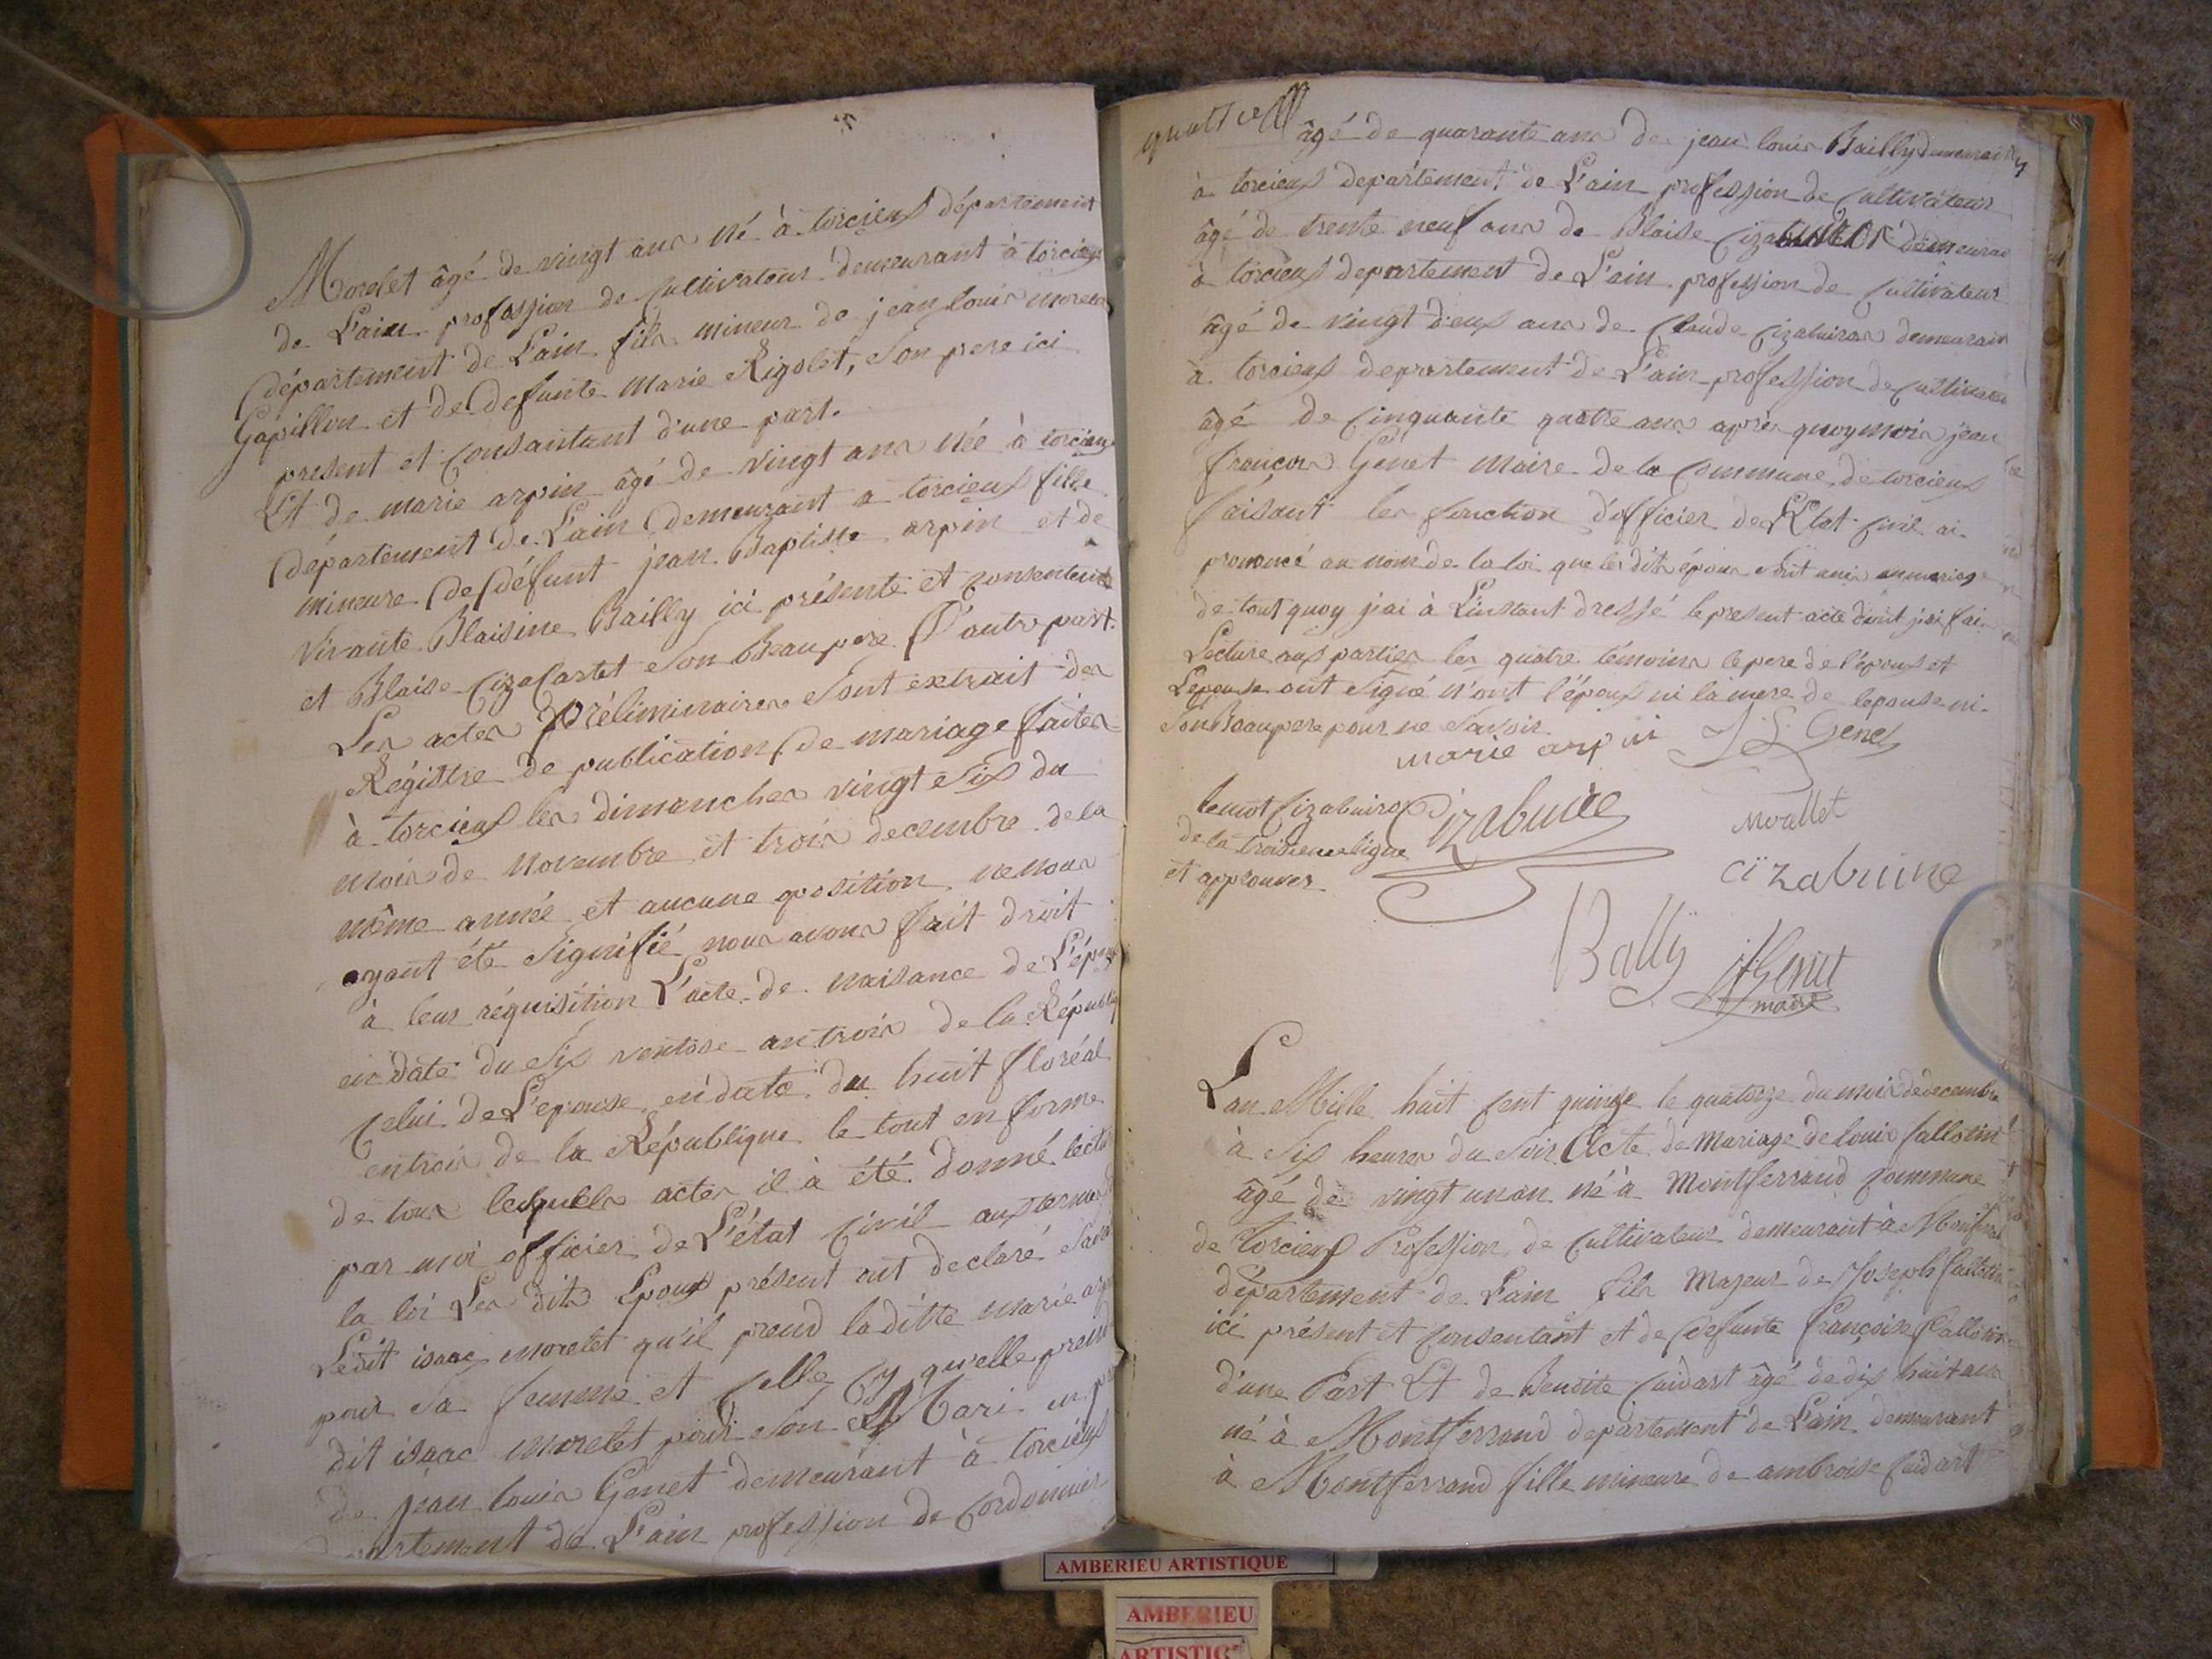 Morelet âgé de vingt ans né à torcieux département
de L'ain profession de cultivateur demeurant à torcieux
département de L'ain fils mineur de jean louis morelet
Gapillon et de defunte Marie Rigolet, Son pere ici
present et consantant d'une part.
Et de marie arpin âgé de vingt ans née à torcieux
département de L'ain demeurant a torcieux fille
mineure de défunt jean Baptiste arpin et de
vivante Blaisine Bailly ici présente et consentente
et Blaise Son Beau pere D'autre part.
Les actes préliminaires Sont extrait des
Régistre de publication de mariage faites
à torcieux les dimanches vingt Six du
mois de Novembre et trois decembre de la
même année et aucune oposition ne nous
ayant été Signifié nous avons fait droit
à leur réquisition L'acte de naisance de L'époux
en date du Six ventose an trois de la Républiq
Celui de L'epouse en date du huit floréal
en trois de la République le tout en forme
de tous lesquels actes il à été donné lectu
par moi officier de L'état Civil aux termes
la loi Les dits Epoux présent ont declaré Savoir
Ledit isaac morelet qu'il prend laditte marie arp
pour Sa femme et Celle Cy qu'elle prend
dit isaac morelet pour Son Mari en
de jean louis Genet demeurant à torcieux
département de L'ain profession de Cordonnier
âgé de quarante ans de jean louis Bailly demeurant
à torcieux département de L'ain profession de Cultivateur
âgé de trente neuf ans de Blaise demeurant
à torcieux departement de L'ain profession de Cultivateur
âgé de vingt deux ans de Claude Cizabuiros demeurant
à torcieux departement de L'ain profession de Cultivateur
âgé de Cinquante quatre ans après quoy moi jean
françois Genet Maire de la Commune de torcieux
faisant les fonction d'officier de L'Etat Civil ai
prononcé au nom de la loi que les dits époux Sont unis en mariage
de tout quoy j'ai à L'instant dressé le present acte dont j'ai fai
Lecture aux parties les quatre témoins le pere de l'époux et
L'epouse ont Signé N'ont l'époux ni la mere de lepouse ni
Son Beaupere pour ne Savoir
marie arpin J. L. Genet
le mot Cizabuiros Cizabuire
de la troisieme ligne Morallet
et approuver
cizabuire
Bally
jfGenet
maire
L'an Mille huit Cent quinze le quatorze du mois de decembre
à Six heures du Soir Acte de Mariage de louis fallotin
âgé de vingt un an né à Montferrand Commune
de Torcieux Profession de Cultivateur demeurant à Montferra
département de L'ain fils Majeur de Joseph fallotin
ici présent et Consentant et de defunte françoise
d'une Part Et de Benoite Cuidart âgé de dix huit ans
né à Montferrand département de L'ain demeurant
à Montferrand fille mineure de ambroise Cuidart
AMBERIEU ARTISTIQUE
AMBERIEU
ARTISTIC